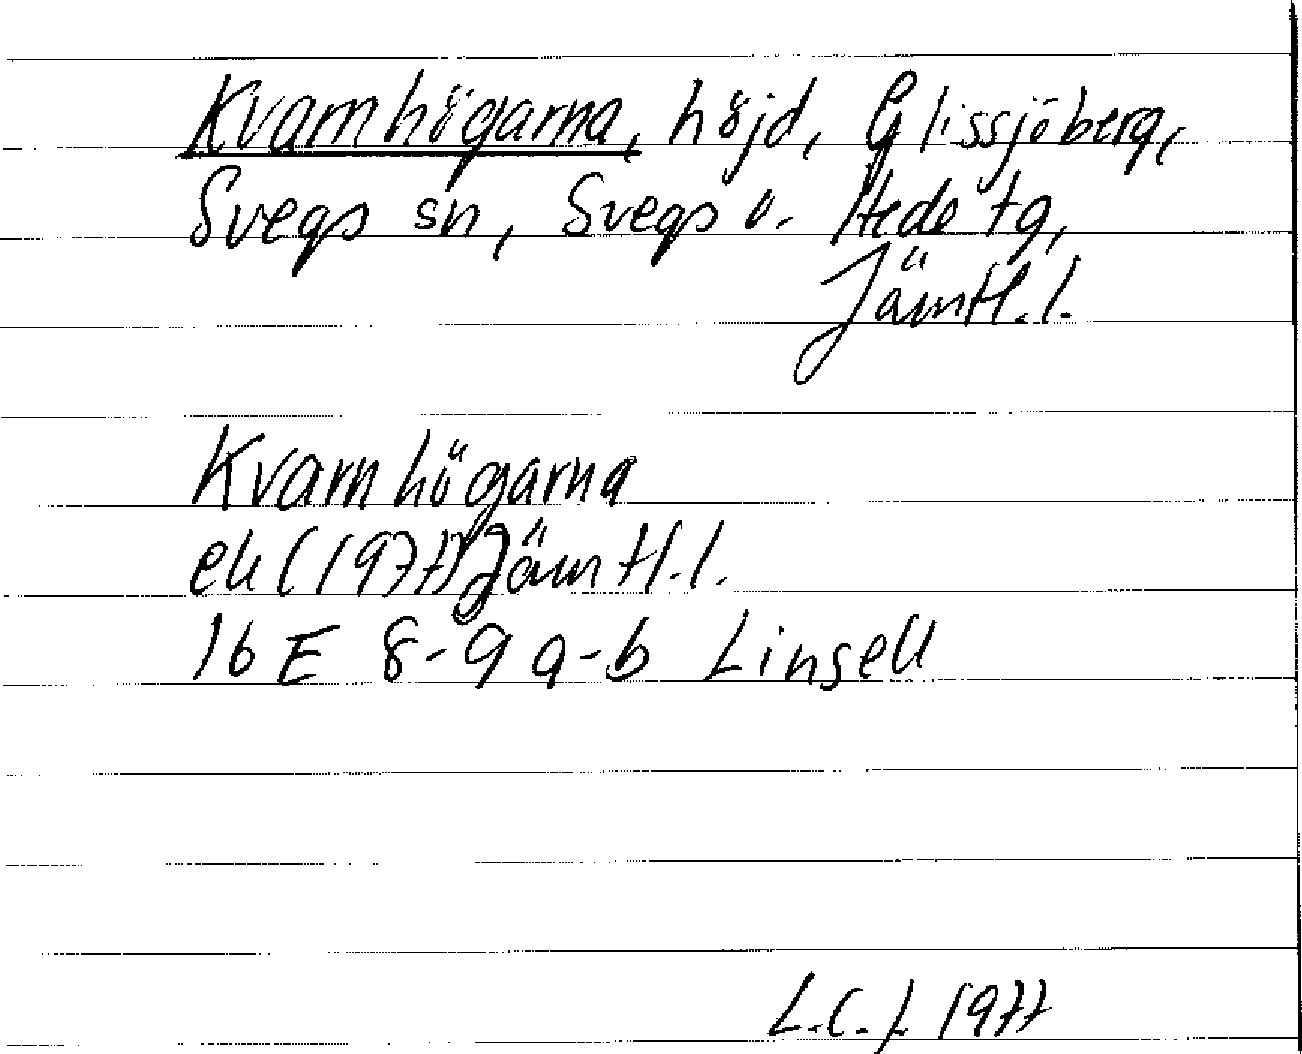 Kvarnhögarna, höjd, Glissjöberg,
Svegs sn, Svegs o. Hede tg,
Jämtl. l.
Kvarnhögarna
ek (1977) Jämtl. l.
16 E 8-9 a-b Linsell
L.C.J. 1977